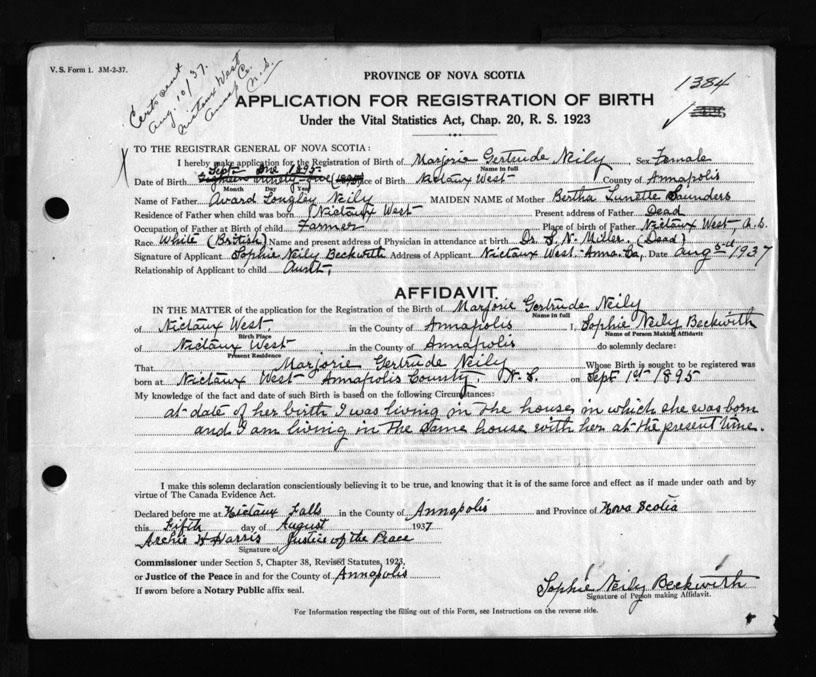 V. S. Form 1. 3M-2-37.
Certs sent
Aug 10/37.
Nictaux West
Anna Co.
N.S.
PROVINCE OF NOVA SCOTIA
1384
APPLICATION FOR REGISTRATION OF BIRTH
Under the Vital Statistics Act, Chap. 20, R. S. 1923
TO THE REGISTRAR GENERAL OF NOVA SCOTIA:
I hereby make application for the Registration of Birth of Marjorie Gertrude Neily Sex Female
Name in full
Sept one 1895.
Date of Birth Eighteen ninety-five (1895) Place of Birth Nictaux West County of Annapolis
Month Day Year
Name of Father Avard Longley Neily MAIDEN NAME of Mother Bertha Lunette Saunders
Residence of Father when child was born Nictaux West Present address of Father Dead
Occupation of Father at Birth of child Farmer Place of birth of Father Nictaux West, A.S.
Race White (British) Name and present address of Physician in attendance at birth Dr. S. N. Miller. (Dead)
Signature of Applicant Sophie Neily Beckwith Address of Applicant Nictaux West Anna. Co, Date Aug 5th 1937
Relationship of Applicant to child Aunt,
AFFIDAVIT
IN THE MATTER of the application for the Registration of the Birth of Marjorie Gertrude Neily
Name in full
of Nictaux West, in the County of Annapolis I, Sophie Neily Beckwith
Birth Place Name of Person Making Affidavit
of Nictaux West in the County of Annapolis do solemnly declare:
Present Residence
That Marjorie Gertrude Neily Whose Birth is sought to be registered was
born at Nictaux West Annapolis County, N. S. on Sept 1st 1895
My knowledge of the fact and date of such Birth is based on the following Circumstances:
at date of her birth I was living in the house in which she was born
and I am living in the same house with her at the present time.
I make this solemn declaration conscientiously believing it to be true, and knowing that it is of the same force and effect as if made under oath and by
virtue of The Canada Evidence Act.
Declared before me at Nictaux Falls in the County of Annapolis and Province of Nova Scotia
this Fifth day of August 1937
Archie W Harris Justice of the Peace
Signature of
Commissioner under Section 5, Chapter 38, Revised Statutes, 1923,
or Justice of the Peace in and for the County of Annapolis
If sworn before a Notary Public affix seal.
Sophie Neily Beckwith
Signature of Person making Affidavit.
For Information respecting the filling out of this Form, see Instructions on the reverse side.